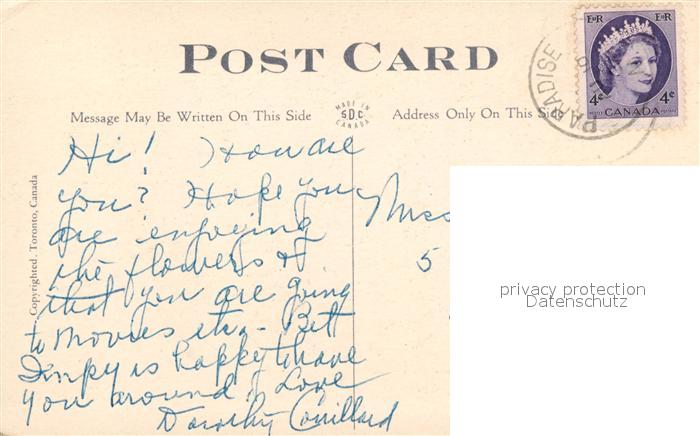 POST CARD
E R E R
4¢ CANADA 4¢
PARADISE
Message May Be Written On This Side
MADE IN
S.D.C.
CANADA
Address Only On This Side
Copyrighted. Toronto, Canada
Hi! How are
you? Hope you
are enjoying
the flowers &
that you are going
to movies etc. - Bet
is happy to have
you around. Love
Dorothy
Miss
5
privacy protection
Datenschutz